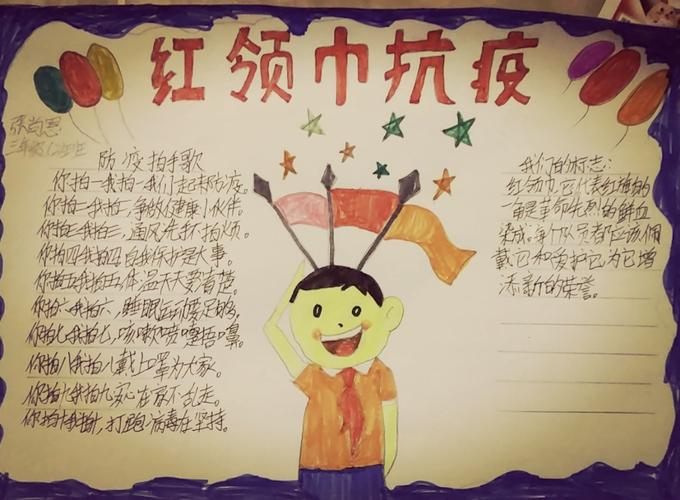 红领巾抗疫
张尚恩
三年级
防疫拍手歌
你拍一我拍一,我们一起来防疫。
你拍二我拍二,争做健康小伙伴。
你拍三我拍三,通风先打
你拍四我拍四,自我保护是大事。
你拍五我拍五,体温天天要
你拍六我拍六,睡眠运动要足够,
你拍七我拍七,咳嗽喷嚏捂口鼻。
你拍八我拍八,戴上口罩为大家。
你拍九我拍九,安心在家不乱走。
你拍十我拍十,打跑病毒在坚持。
我们的标志:
红领巾,它代表红旗的
一角是革命先烈的鲜血
染成。每个队员都应该佩
戴它和爱护它,为它增
添新的荣誉。